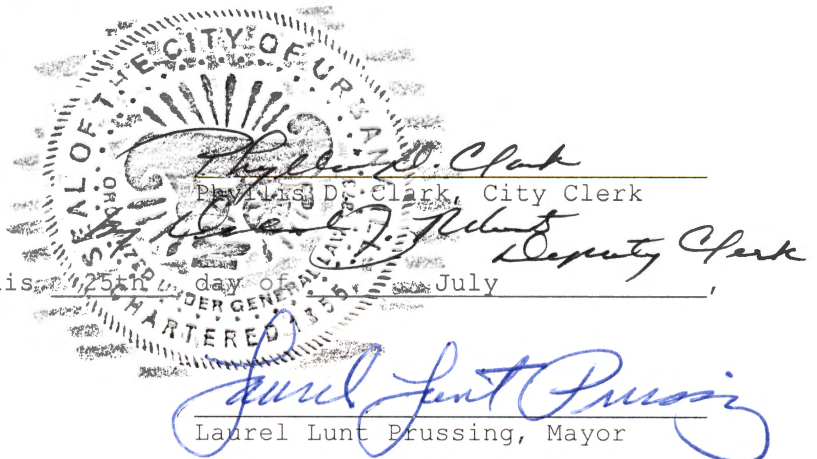 SEAL OF THE CITY OF URBANA
ORGANIZED UNDER GENERAL LAW 1873
CHARTERED 1855
Phyllis D. Clark
Phyllis D. Clark, City Clerk
by J. Roberts
Deputy Clerk
is 25th day of July ,
Laurel Lunt Prussing
Laurel Lunt Prussing, Mayor